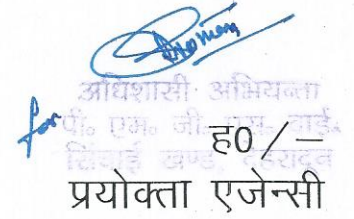 for
अधिशासी अभियन्ता
पी० एम० जी० एस० वाई०
ह0/—
सिंचाई खण्ड, देहरादून
प्रयोक्ता एजेन्सी